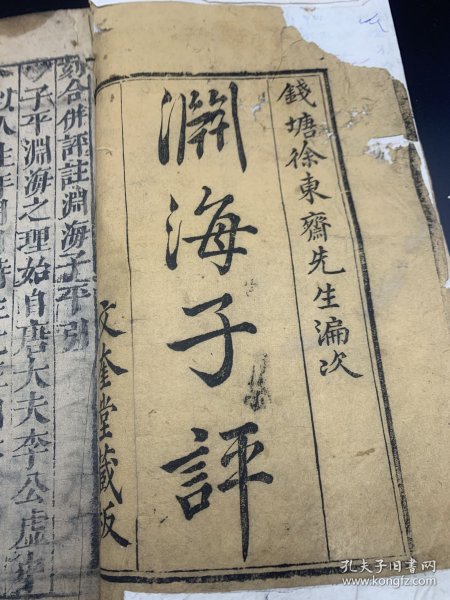 錢塘徐東齋先生漏次
淵海子評
文奎堂藏板
刻合併評註淵海子平引
子平淵海之理始自唐大夫李公虛中
以人生年月
孔夫子旧书网
www.kongfz.com